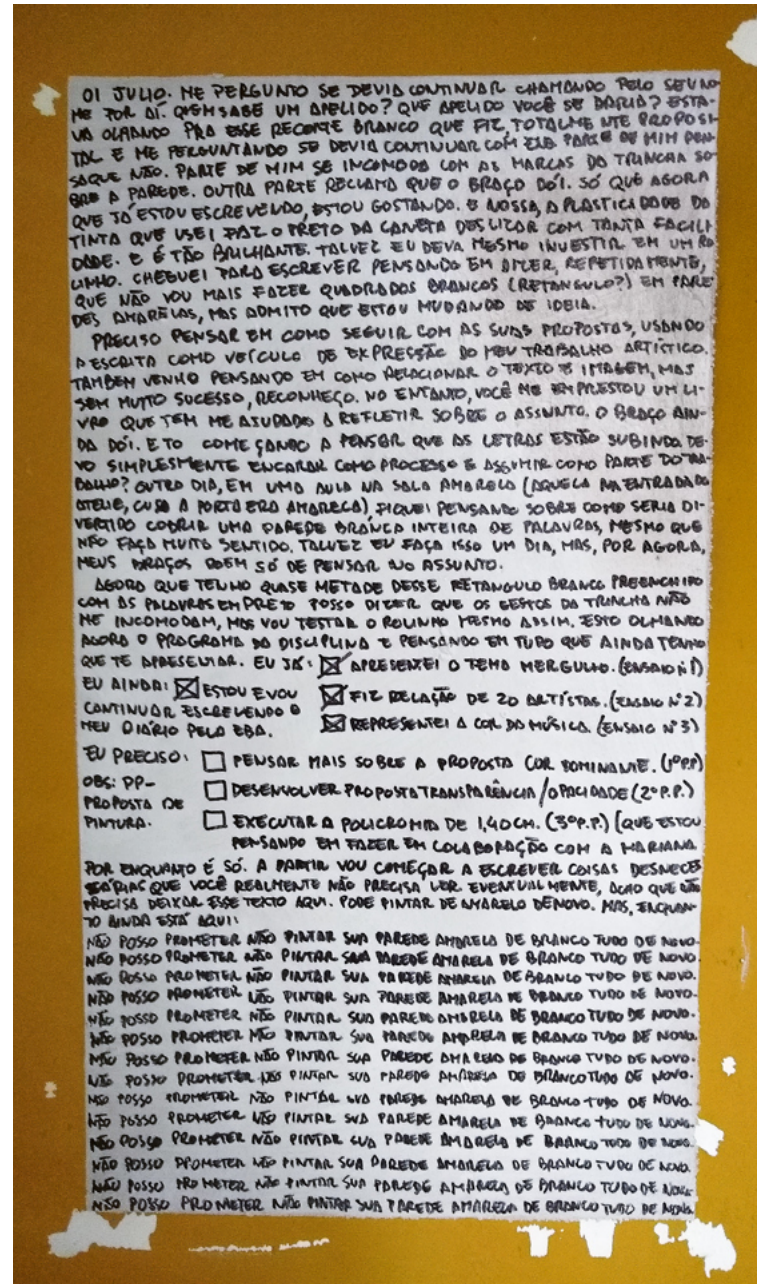 OI JULIO. ME PERGUNTO SE DEVIA CONTINUAR CHAMANDO PELO SEU NO-
ME POR AÍ. QUEM SABE UM APELIDO? QUE APELIDO VOCÊ SE DARIA? ESTA-
VA OLHANDO PRA ESSE RECORTE BRANCO QUE FIZ, TOTALMENTE PROPOSI
TAL E ME PERGUNTANDO SE DEVIA CONTINUAR COM ELA PARTE DE MIM PEN
SA QUE NÃO. PARTE DE MIM SE INCOMODA COM AS MARCAS DA TRINCHA SO
BRE A PAREDE. OUTRA PARTE RECLAMA QUE O BRAÇO DÓI. SÓ QUE AGORA
QUE JÁ ESTOU ESCREVENDO, ESTOU GOSTANDO. E NOSSA, A PLASTICIDADE DA
TINTA QUE USEI FAZ O PRETO DA CANETA DESLIZAR COM TANTA FACILI
DADE. E É TÃO BRILHANTE. TALVEZ EU DEVA MESMO INVESTIR EM UM RO
LINHO. CHEGUEI PARA ESCREVER PENSANDO EM DIZER, REPETIDAMENTE,
QUE NÃO VOU MAIS FAZER QUADRADOS BRANCOS (RETANGULO?) EM PARE
DES AMARELAS, MAS ADMITO QUE ESTOU MUDANDO DE IDEIA.
PRECISO PENSAR EM COMO SEGUIR COM AS SUAS PROPOSTAS, USANDO
A ESCRITA COMO VEÍCULO DE EXPRESSÃO DO MEU TRABALHO ARTÍSTICO.
TAMBEM VENHO PENSANDO EM COMO RELACIONAR O TEXTO E IMAGEM, MAS
SEM MUITO SUCESSO, RECONHEÇO. NO ENTANTO, VOCÊ ME EMPRESTOU UM LI-
VRO QUE TEM ME AJUDADO A REFLETIR SOBRE O ASSUNTO. O BRAÇO AIN-
DA DÓI. E TO COMEÇANDO A PENSAR QUE AS LETRAS ESTÃO SUBINDO. DE-
VO SIMPLESMENTE ENCARAR COMO PROCESSO E ASSUMIR COMO PARTE DO TRA-
BALHO? OUTRO DIA, EM UMA AULA NA SALA AMARELA (AQUELA NA ENTRADA DO
ATELIE, CUJA A PORTA ERA AMARELA) FIQUEI PENSANDO SOBRE COMO SERIA DI-
VERTIDO COBRIR UMA PAREDE BRANCA INTEIRA DE PALAVRAS, MESMO QUE
NÃO FAÇA MUITO SENTIDO. TALVEZ EU FAÇA ISSO UM DIA, MAS, POR AGORA,
MEUS BRAÇOS DOEM SÓ DE PENSAR NO ASSUNTO.
AGORA QUE TENHO QUASE METADE DESSE RETANGULO BRANCO PREENCHIDO
COM AS PALAVRAS EM PRETO POSSO DIZER QUE OS GESTOS DA TRINCHA NÃO
ME INCOMODAM, MAS VOU TESTAR O ROLINHO MESMO ASSIM. ESTO OLHANDO
AGORA O PROGRAMA DA DISCIPLINA E PENSANDO EM TUDO QUE AINDA TENHO
QUE TE APRESENTAR. EU JÁ: ☒ APRESENTEI O TEMA MERGULHO. (ENSAIO Nº1)
EU AINDA: ☒ ESTOU E VOU ☒ FIZ RELAÇÃO DE 20 ARTÍSTAS. (ENSAIO Nº2)
CONTINUAR ESCREVENDO O ☒ REPRESENTEI A COR DA MÚSICA. (ENSAIO Nº3)
MEU DIÁRIO PELA EBA.
EU PRECISO: ☐ PENSAR MAIS SOBRE A PROPOSTA COR DOMINANTE. (1ºP.P)
OBS: PP- ☐ DESENVOLVER PROPOSTA TRANSPARÊNCIA/OPACIDADE (2ºP.P.)
PROPOSTA DE
PINTURA. ☐ EXECUTAR A POLICROMIA DE 1,40CM. (3ºP.P.) [QUE ESTOU
PENSANDO EM FAZER EM COLABORAÇÃO COM A MARIANA
POR ENQUANTO É SÓ. A PARTIR VOU COMEÇAR A ESCREVER COISAS DESNECES
SÁRIAS QUE VOCÊ REALMENTE NÃO PRECISA LER. EVENTUALMENTE, ACHO QUE NÃO
PRECISA DEIXAR ESSE TEXTO AQUI. PODE PINTAR DE AMARELO DE NOVO. MAS, ENQUAN-
TO AINDA ESTÁ AQUI:
NÃO POSSO PROMETER NÃO PINTAR SUA PAREDE AMARELA DE BRANCO TUDO DE NOVO.
NÃO POSSO PROMETER NÃO PINTAR SUA PAREDE AMARELA DE BRANCO TUDO DE NOVO.
NÃO POSSO PROMETER NÃO PINTAR SUA PAREDE AMARELA DE BRANCO TUDO DE NOVO.
NÃO POSSO PROMETER NÃO PINTAR SUA PAREDE AMARELA DE BRANCO TUDO DE NOVO.
NÃO POSSO PROMETER NÃO PINTAR SUA PAREDE AMARELA DE BRANCO TUDO DE NOVO.
NÃO POSSO PROMETER NÃO PINTAR SUA PAREDE AMARELA DE BRANCO TUDO DE NOVO.
NÃO POSSO PROMETER NÃO PINTAR SUA PAREDE AMARELA DE BRANCO TUDO DE NOVO.
NÃO POSSO PROMETER NÃO PINTAR SUA PAREDE AMARELA DE BRANCO TUDO DE NOVO.
NÃO POSSO PROMETER NÃO PINTAR SUA PAREDE AMARELA DE BRANCO TUDO DE NOVO.
NÃO POSSO PROMETER NÃO PINTAR SUA PAREDE AMARELA DE BRANCO TUDO DE NOVO.
NÃO POSSO PROMETER NÃO PINTAR SUA PAREDE AMARELA DE BRANCO TUDO DE NOVO.
NÃO POSSO PROMETER NÃO PINTAR SUA PAREDE AMARELA DE BRANCO TUDO DE NOVO.
NÃO POSSO PROMETER NÃO PINTAR SUA PAREDE AMARELA DE BRANCO TUDO DE NOVO.
NÃO POSSO PROMETER NÃO PINTAR SUA PAREDE AMARELA DE BRANCO TUDO DE NOVO.